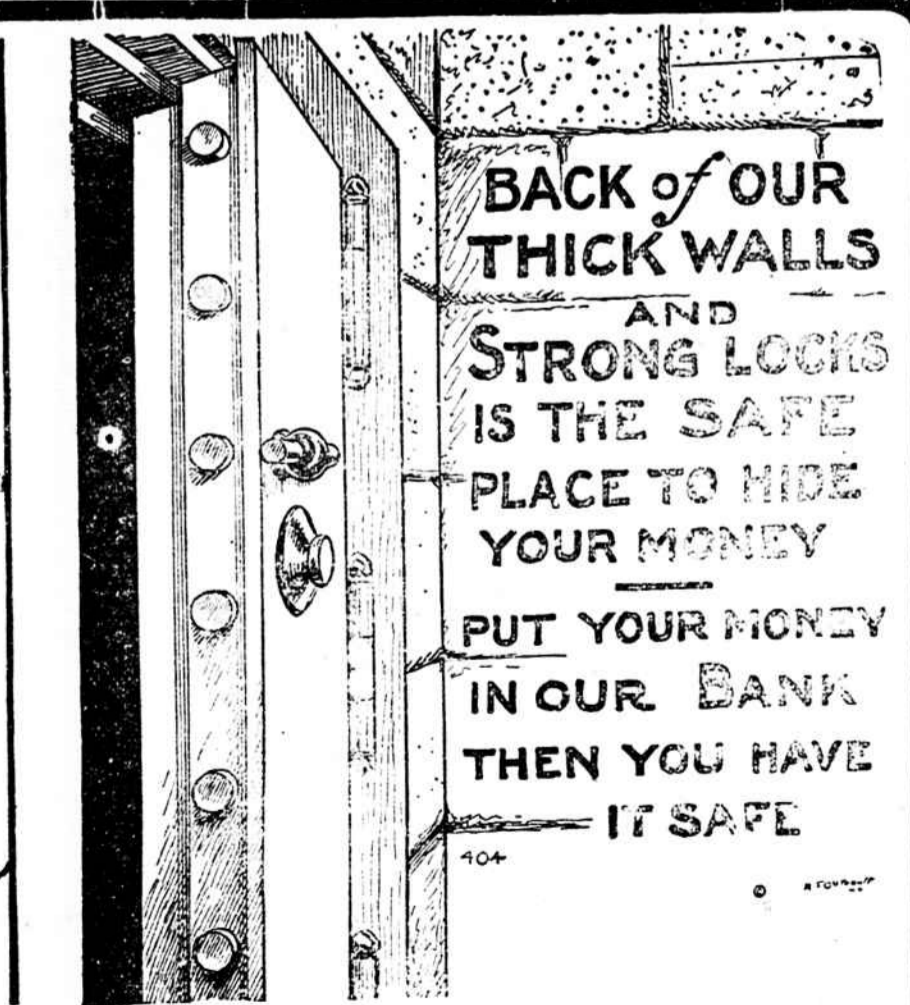 BACK of OUR
THICK WALLS
AND
STRONG LOCKS
IS THE SAFE
PLACE TO HIDE
YOUR MONEY
PUT YOUR MONEY
IN OUR BANK
THEN YOU HAVE
IT SAFE
404
©